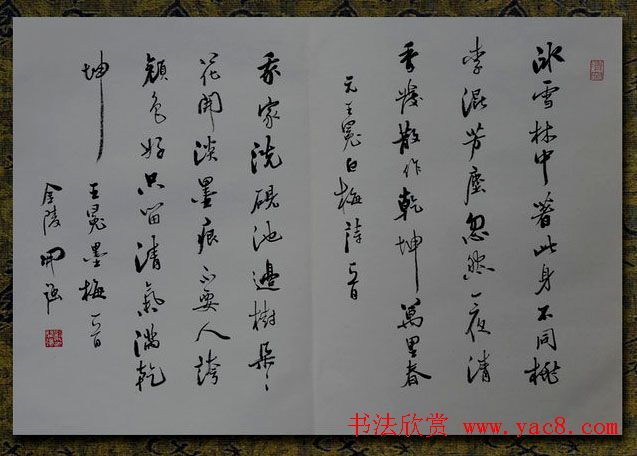 冰雪林中著此身不同桃
李混芳塵忽然一夜清
香發散作乾坤萬里春
元王冕白梅詩一首
我家洗硯池邊樹朵〻
花開淡墨痕不要人誇
顏色好只留清氣滿乾
坤
王冕墨梅一首
金陵
书法欣赏 www.yac8.com